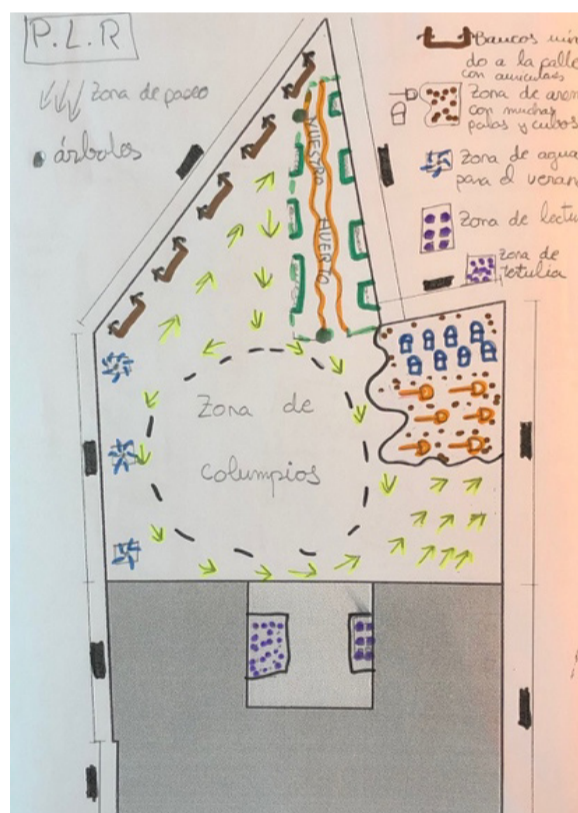 P.L.R
Zona de paseo
árboles
Bancos
do a la calle
con auriculares
Zona de
con muchas
palas y cubos
Zona de agua
para el
Zona de
Zona de
tertulia
NUESTRO HUERTO
Zona de
columpios